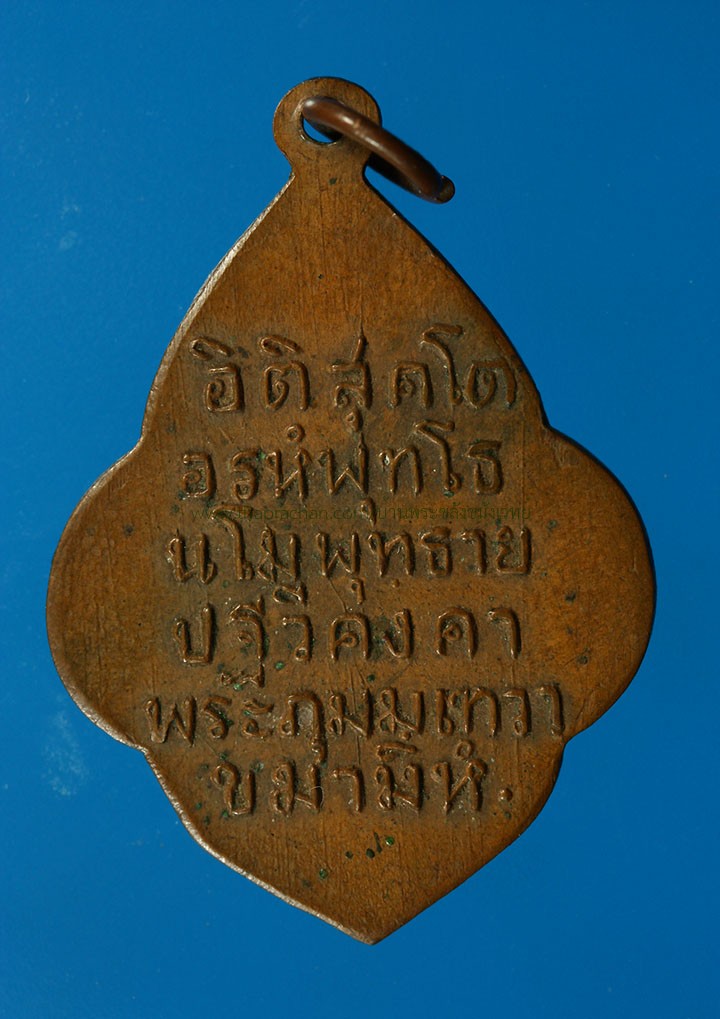 อิติสุคโต
อรหํพุทโธ
นโมพุทธาย
ปฐวีคงคา
พระภุมมเทวา
ขมามิหํ.